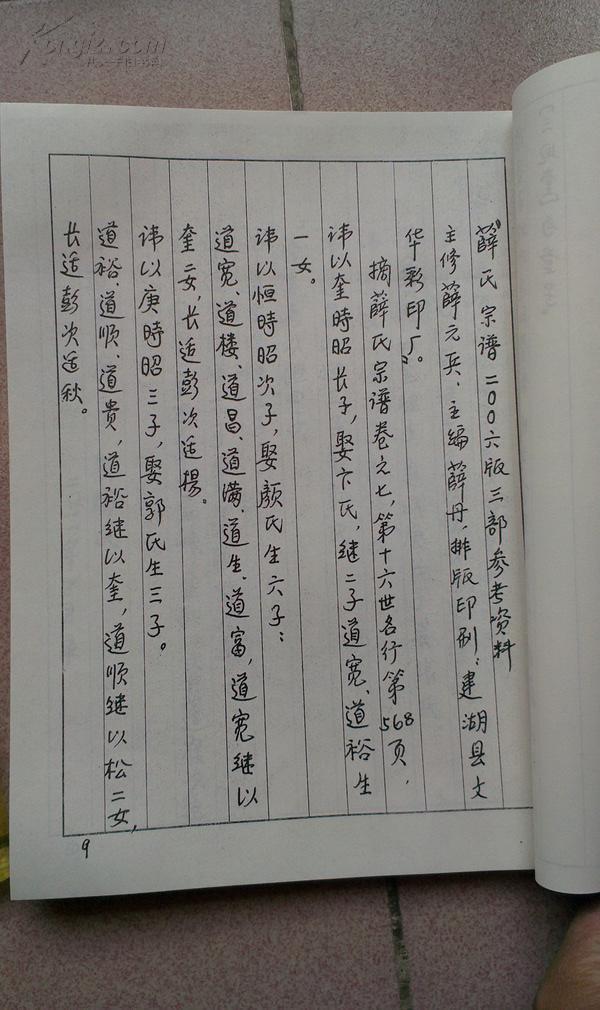 薛氏宗谱二00六版三部参考资料
主修薛元兵、主编薛丹，排版印刷：建湖县文
华彩印厂。
摘薛氏宗谱卷之七，第十六世名行第568页，
讳以奎時昭长子，娶卞氏，继二子道宽、道裕生
一女。
讳以恒時昭次子，娶颜氏生六子：
道宽、道楼、道昌、道满、道生、道富，道宽继以
奎二女，长适彭次适揚。
讳以庚時昭三子，娶郭氏生三子。
道裕、道顺、道贵，道裕继以奎，道顺继以松二女，
长适彭次适秋。
9